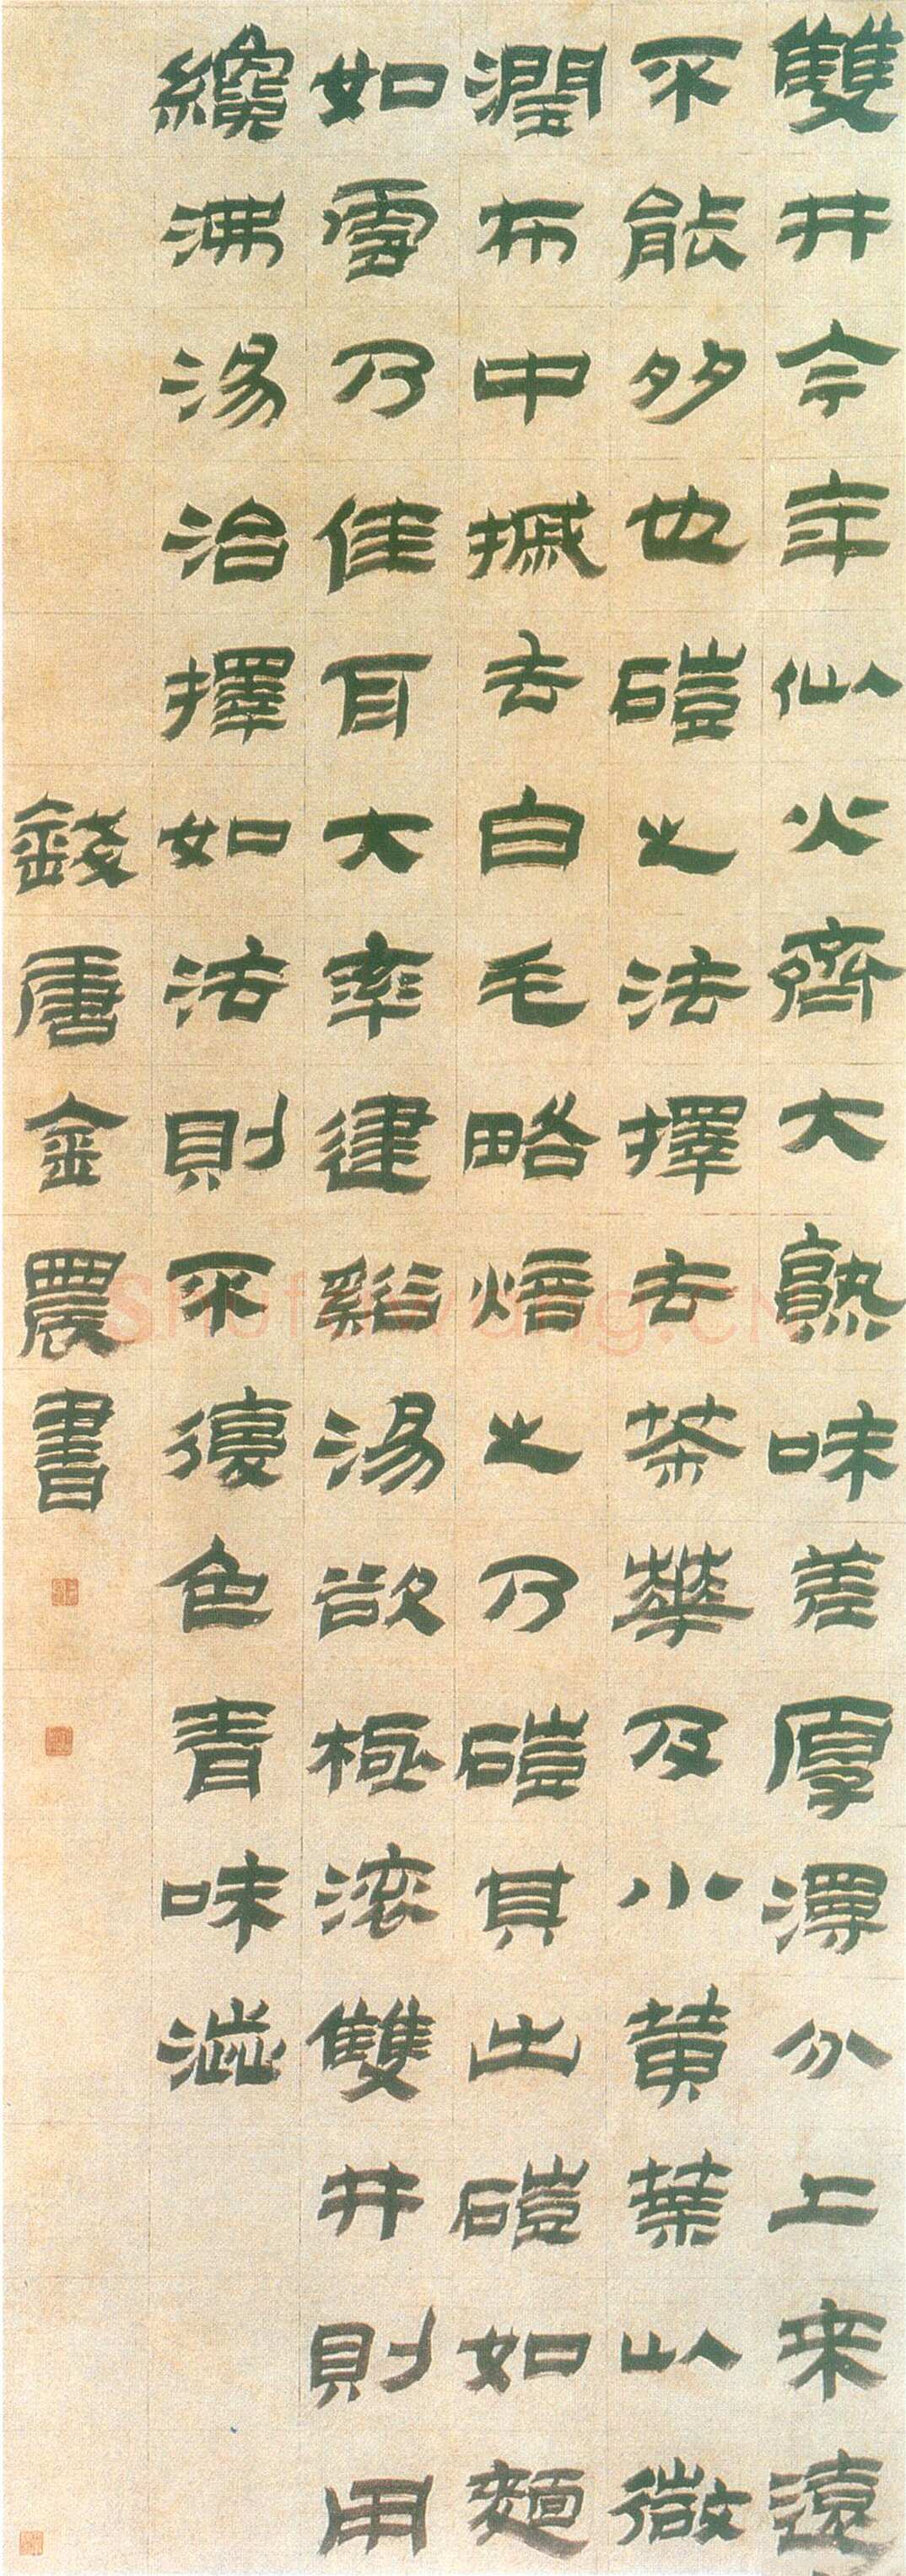 雙井今年似火齊大熟味差厚潭分上来遠
不能多也磑之法擇去茶華及小黄葉以微
潤布中搣去白毛略焙之乃磑其出磑如麵
如雪乃佳耳大率建谿湯欲極滾雙井則用
纔沸湯治擇如法則不復色青味澁
錢唐金農書